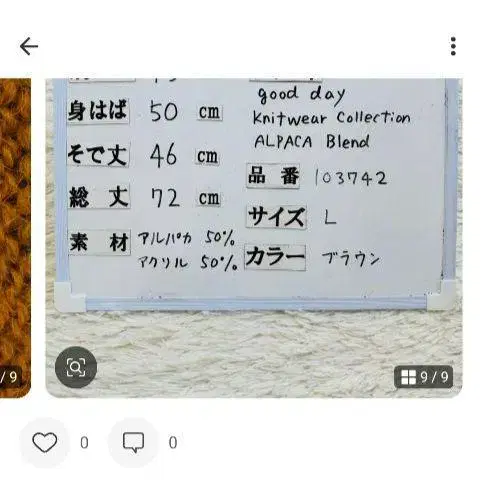 good day
身はば 50 cm
Knitwear Collection
ALPACA Blend
そで丈 46 cm
品番 103742
総丈 72 cm
サイズ L
素材 アルパカ 50%
アクリル 50%
カラー ブラウン
/9
9/9
0
0